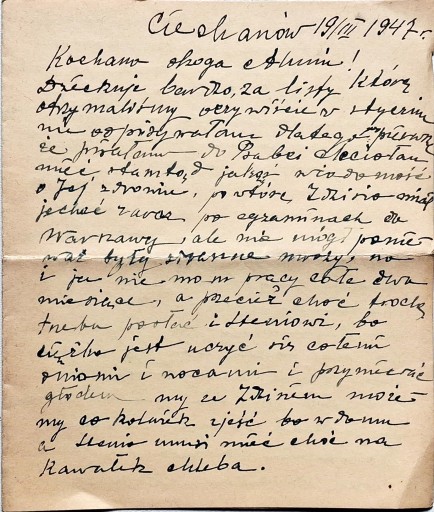 Ciechanów 19/III 1947 r.
Kochana droga Alniu!
Dziękuję bardzo, za listy które
otrzymaliśmy oczywiście w styczniu
nie odpisywałam dlatego, po pierwsze
że pisałam do Babci
mieć stamtąd jakąś wiadomość
o Jej zdrowiu, po wtóre, Zdzisio miał
jechać zaraz po egzaminach do
Warszawy, ale nie mógł ponie
waż były straszne mrozy, no
i ja nie mam pracy całe dwa
miesiące, a przecież choć trochę
trzeba posłać i Heniowi, bo
ciężko jest uczyć się całemi
dniami i nocami i przymierać
głodem my ze Zdzisiem może
my co kolwiek zjeść bo w domu
a Henio musi mieć choć na
kawałek chleba.